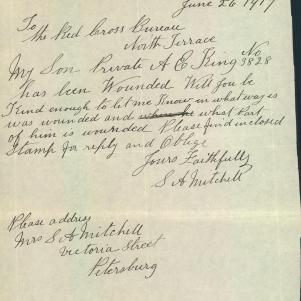 June 26 1917
To
The Red Cross Bureau
North Terrace
My Son Private A E King No 3828
has been Wounded Will you be
Kind enough to let me Know in what way is
was wounded and where he what Part
of him is wounded Please find inclosed
Stamp for reply and Oblige
Yours Faithfully
S A Mitchell
Please address
Mrs S A Mitchell
Victoria Street
Petersburg